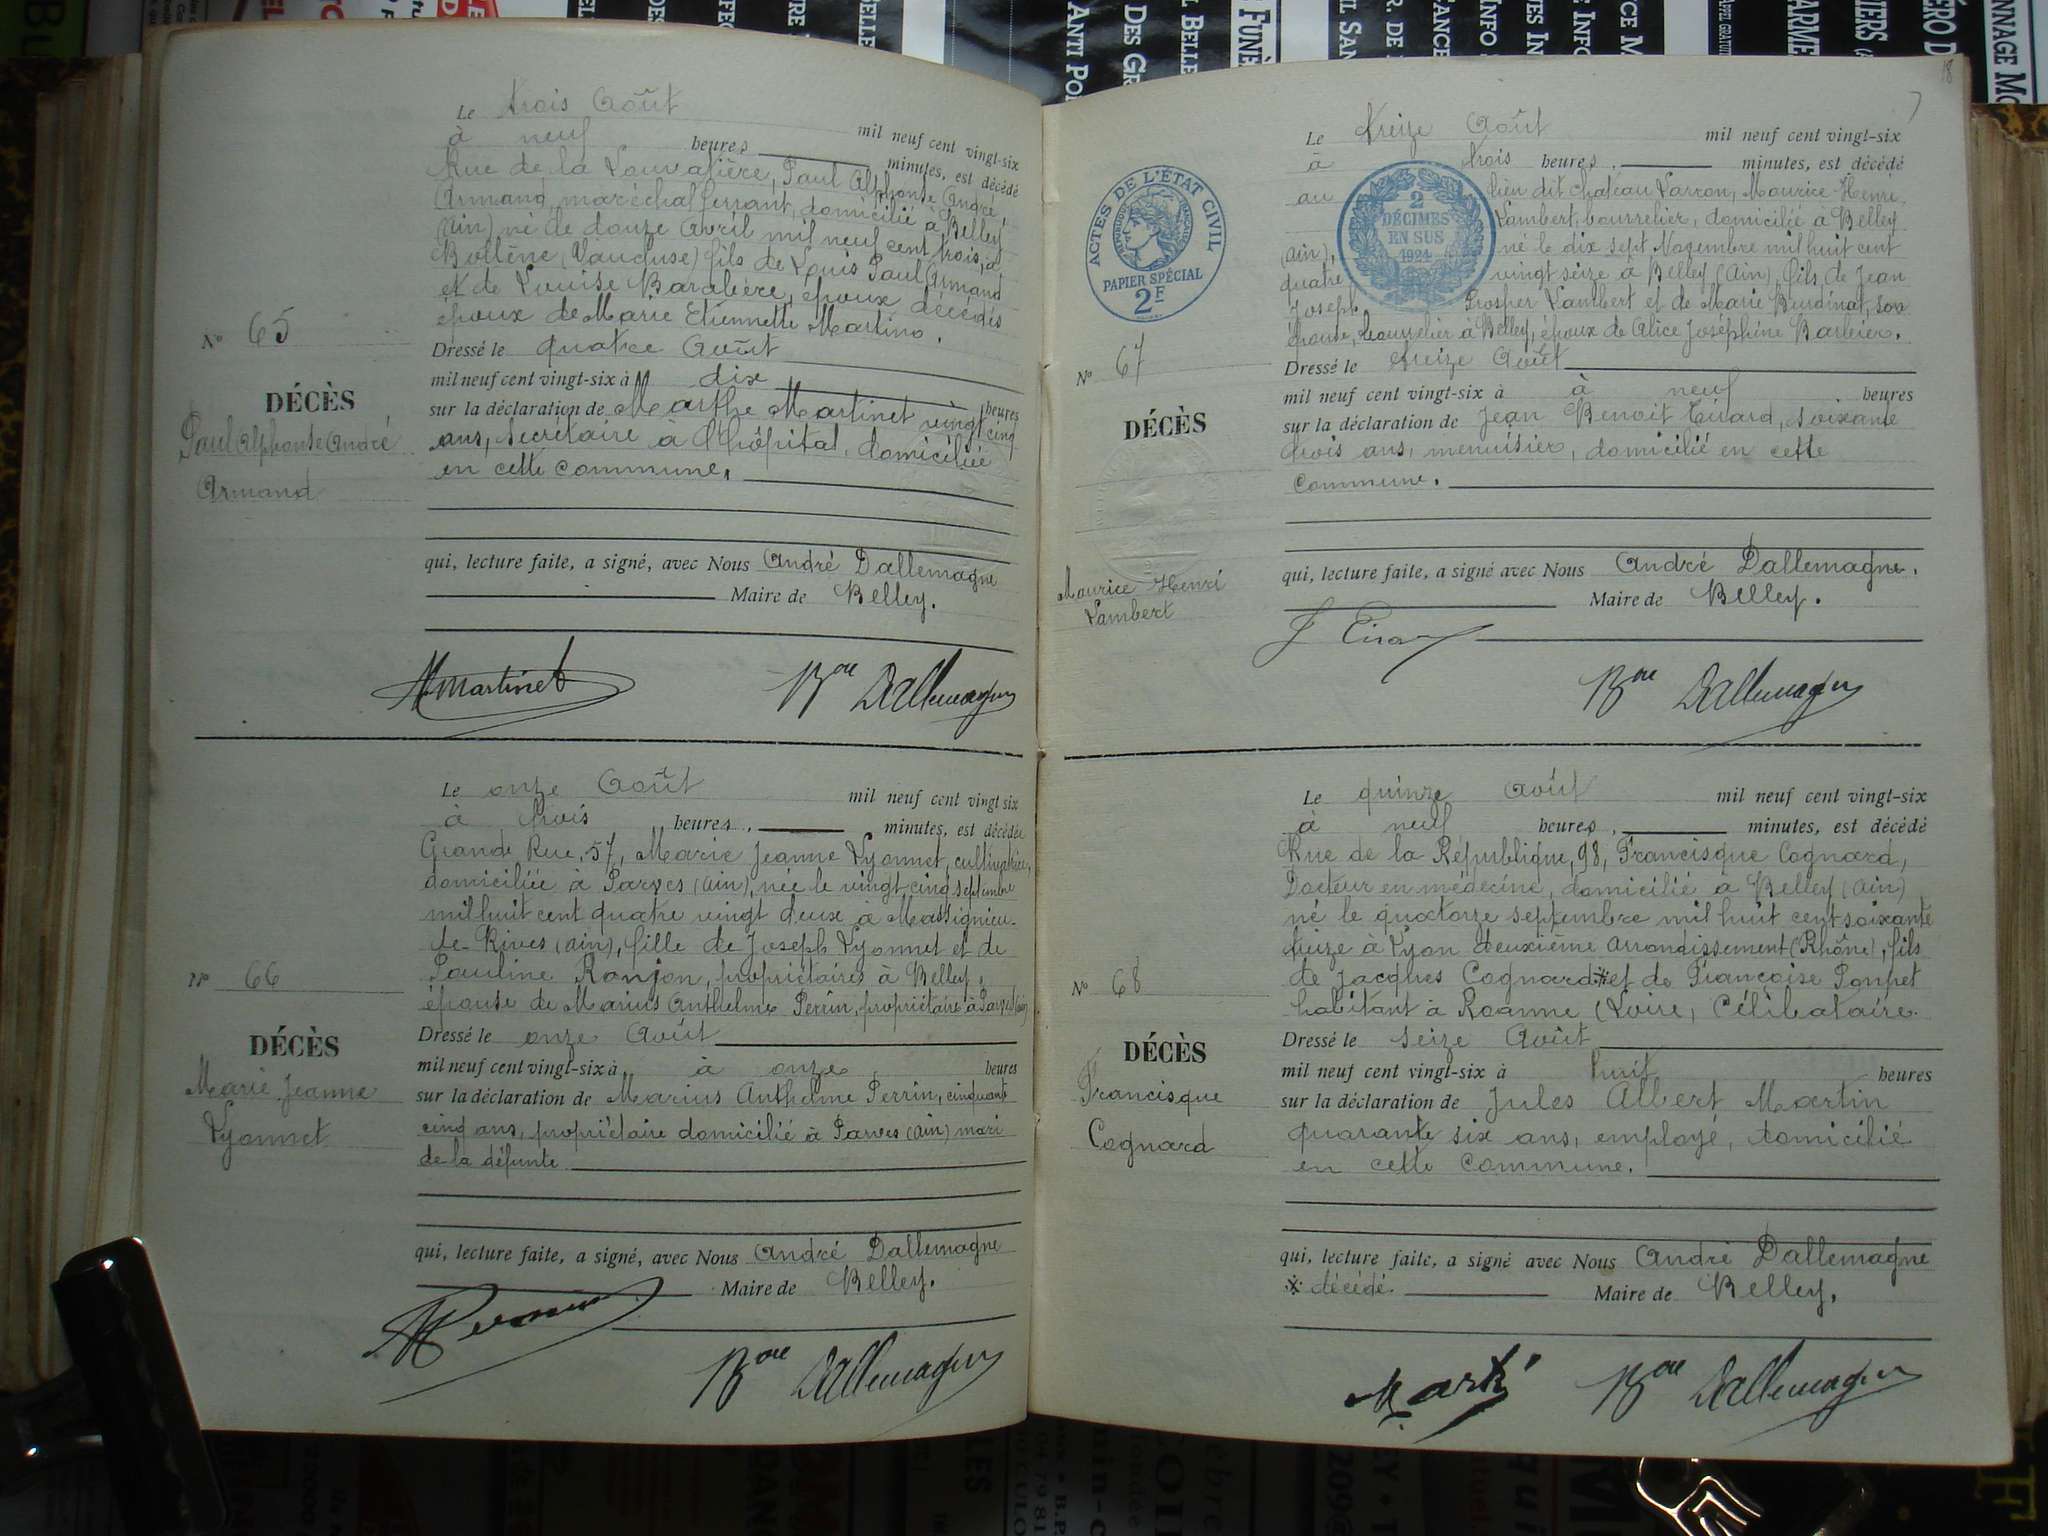 Le trois Août mil neuf cent vingt-six
à neuf heures minutes, est décédé
Rue de la Louvatière, Paul Alphonse André
Armand, maréchal ferrant, domicilié à Belley
(Ain) né le douze Avril mil neuf cent trois, à
Bollène (Vaucluse) fils de Louis Paul Armand
et de Louise Barabière, époux décédés
époux de Marie Etiennette Martino.
N° 65
DÉCÈS
Paul Alphonse André
Armand
Dressé le quatre Août
mil neuf cent vingt-six à dix heures
sur la déclaration de Marthe Martinet vingt cinq
ans, secrétaire à l'hôpital, domiciliée
en cette commune.
qui, lecture faite, a signé, avec Nous André Dallemagne
Maire de Belley.
M martinet Bon Dallemagne
Le onze Août mil neuf cent vingt six
à trois heures, minutes, est décédée
Grande Rue, 57, Marie Jeanne Lyonnet, cultivatrice,
domiciliée à Parves (Ain), née le vingt cinq septembre
mil huit cent quatre vingt deux à Massignieu-
de-Rives (Ain), fille de Joseph Lyonnet et de
Pauline Ronjon, propriétaires à Belley,
épouse de Marius Anthelme Perrin, propriétaire à Parves (Ain)
N° 66
DÉCÈS
Marie Jeanne
Lyonnet
Dressé le onze Août
mil neuf cent vingt-six à à onze heures
sur la déclaration de Marius Anthelme Perrin, cinquante
cinq ans, propriétaire domicilié à Parves (Ain) mari
de la défunte
qui, lecture faite, a signé, avec Nous André Dallemagne
Maire de Belley.
Bon Dallemagne
18
7
Le treize Août mil neuf cent vingt-six
à trois heures, minutes, est décédé
au lieu dit chateau Larron, Maurice Henri
Lambert, bourrelier, domicilié à Belley
(Ain), né le dix sept Novembre mil huit cent
quatre vingt seize à Belley (Ain), fils de Jean
Joseph Prosper Lambert et de Marie Burdinat, son
épouse, bourrelier à Belley, époux de Alice Joséphine Barbier.
ACTES DE L'ÉTAT CIVIL
RÉPUBLIQUE FRANÇAISE
PAPIER SPÉCIAL
2F
2
DÉCIMES
EN SUS
1924
N° 67
DÉCÈS
Maurice Henri
Lambert
Dressé le treize Août
mil neuf cent vingt-six à à neuf heures
sur la déclaration de Jean Benoit Eirard, soixante
trois ans, menuisier, domicilié en cette
commune.
qui, lecture faite, a signé avec Nous André Dallemagne.
Maire de Belley.
Bon Dallemagne
Le quinze août mil neuf cent vingt-six
à neuf heures, minutes, est décédé
Rue de la République, 98, Francisque Cognard,
Docteur en médecine, domicilié à Belley (Ain)
né le quatorze septembre mil huit cent soixante
treize à Lyon deuxième arrondissement (Rhône), fils
de Jacques Cognard※ et de Françoise Ponpet
habitant à Roanne (Loire, Célibataire.
N° 68
DÉCÈS
Francisque
Cognard
Dressé le seize Août
mil neuf cent vingt-six à huit heures
sur la déclaration de Jules Albert Martin
quarante six ans, employé, domicilié
en cette commune.
qui, lecture faite, a signé avec Nous André Dallemagne
※ décédé. Maire de Belley.
Bon Dallemagne